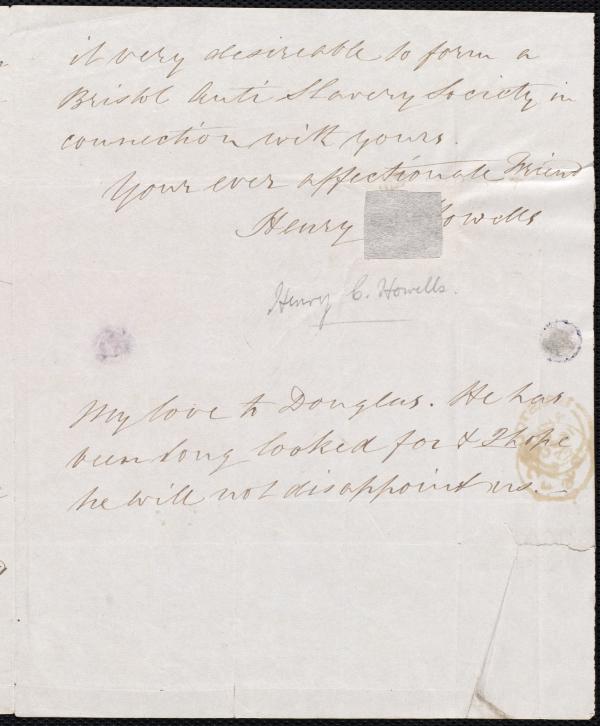 it very desireable to form a
Bristol Anti Slavery Society in
connection with yours.
Your ever affectionate Friend
Henry Howells
Henry C. Howells.
My love to Douglas. He has
been long looked for & I hope
he will not disappoint us.